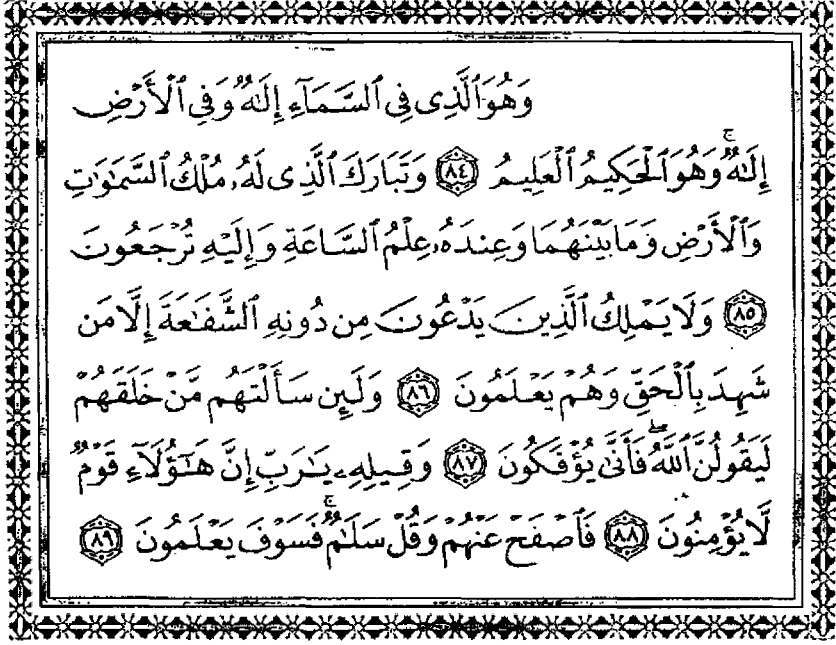 وَهُوَ ٱلَّذِى فِى ٱلسَّمَآءِ إِلَٰهٌ وَفِى ٱلْأَرْضِ
إِلَٰهٌ ۚ وَهُوَ ٱلْحَكِيمُ ٱلْعَلِيمُ ﴿٨٤﴾ وَتَبَارَكَ ٱلَّذِى لَهُۥ مُلْكُ ٱلسَّمَٰوَٰتِ
وَٱلْأَرْضِ وَمَا بَيْنَهُمَا وَعِندَهُۥ عِلْمُ ٱلسَّاعَةِ وَإِلَيْهِ تُرْجَعُونَ
﴿٨٥﴾ وَلَا يَمْلِكُ ٱلَّذِينَ يَدْعُونَ مِن دُونِهِ ٱلشَّفَٰعَةَ إِلَّا مَن
شَهِدَ بِٱلْحَقِّ وَهُمْ يَعْلَمُونَ ﴿٨٦﴾ وَلَئِن سَأَلْتَهُم مَّنْ خَلَقَهُمْ
لَيَقُولُنَّ ٱللَّهُ ۖ فَأَنَّىٰ يُؤْفَكُونَ ﴿٨٧﴾ وَقِيلِهِۦ يَٰرَبِّ إِنَّ هَٰٓؤُلَآءِ قَوْمٌ
لَّا يُؤْمِنُونَ ﴿٨٨﴾ فَٱصْفَحْ عَنْهُمْ وَقُلْ سَلَٰمٌ ۚ فَسَوْفَ يَعْلَمُونَ ﴿٨٩﴾